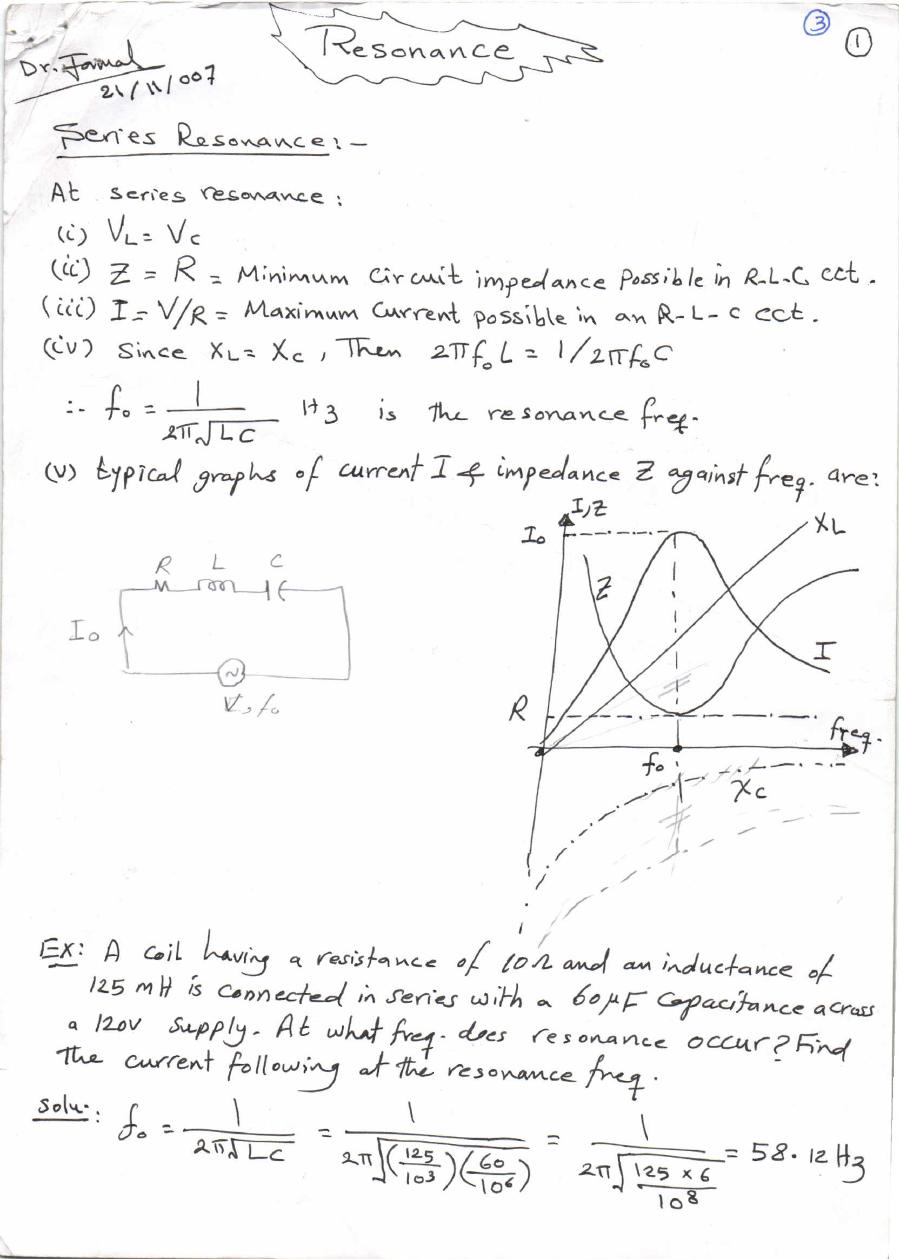 Resonance
3
1
Dr. Jamal
21/11/007
Series Resonance:-
At series resonance:
(i) VL = Vc
(ii) Z = R = Minimum Circuit impedance Possible in R-L-C cct.
(iii) I = V/R = Maximum Current possible in an R-L-C cct.
(iv) Since XL = Xc, Then 2πf₀L = 1/2πf₀C
∴ f₀ = 1/2π√LC Hz is the resonance freq.
(v) typical graphs of current I & impedance Z against freq. are:
I,Z
I₀
XL
Z
I
R
freq.
f₀
Xc
R L C
I₀
V, f₀
Ex: A coil having a resistance of 10Ω and an inductance of
125 mH is connected in series with a 60μF capacitance across
a 120V supply. At what freq. does resonance occur? Find
The current following at the resonance freq.
Solu.: f₀ = 1/2π√LC = 1/2π√(125/10³)(60/10⁶) = 1/2π√125×6/10⁸ = 58.12 Hz